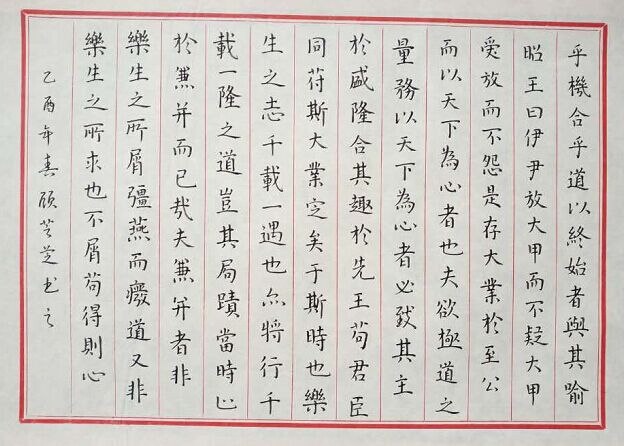 乎機合乎道以終始者與其喻
昭王曰伊尹放大甲而不疑大甲
受放而不怨是存大業於至公
而以天下為心者也夫欲極道之
量務以天下為心者必致其主
於盛隆合其趣於先王苟君臣
同苻斯大業定矣于斯時也樂
生之志千載一遇也亦將行千
載一隆之道豈其局蹟當時止
於兼并而已哉夫兼并者非
樂生之所屑彊燕而癈道又非
樂生之所求也不屑苟得則心
乙酉年春顾芝书之